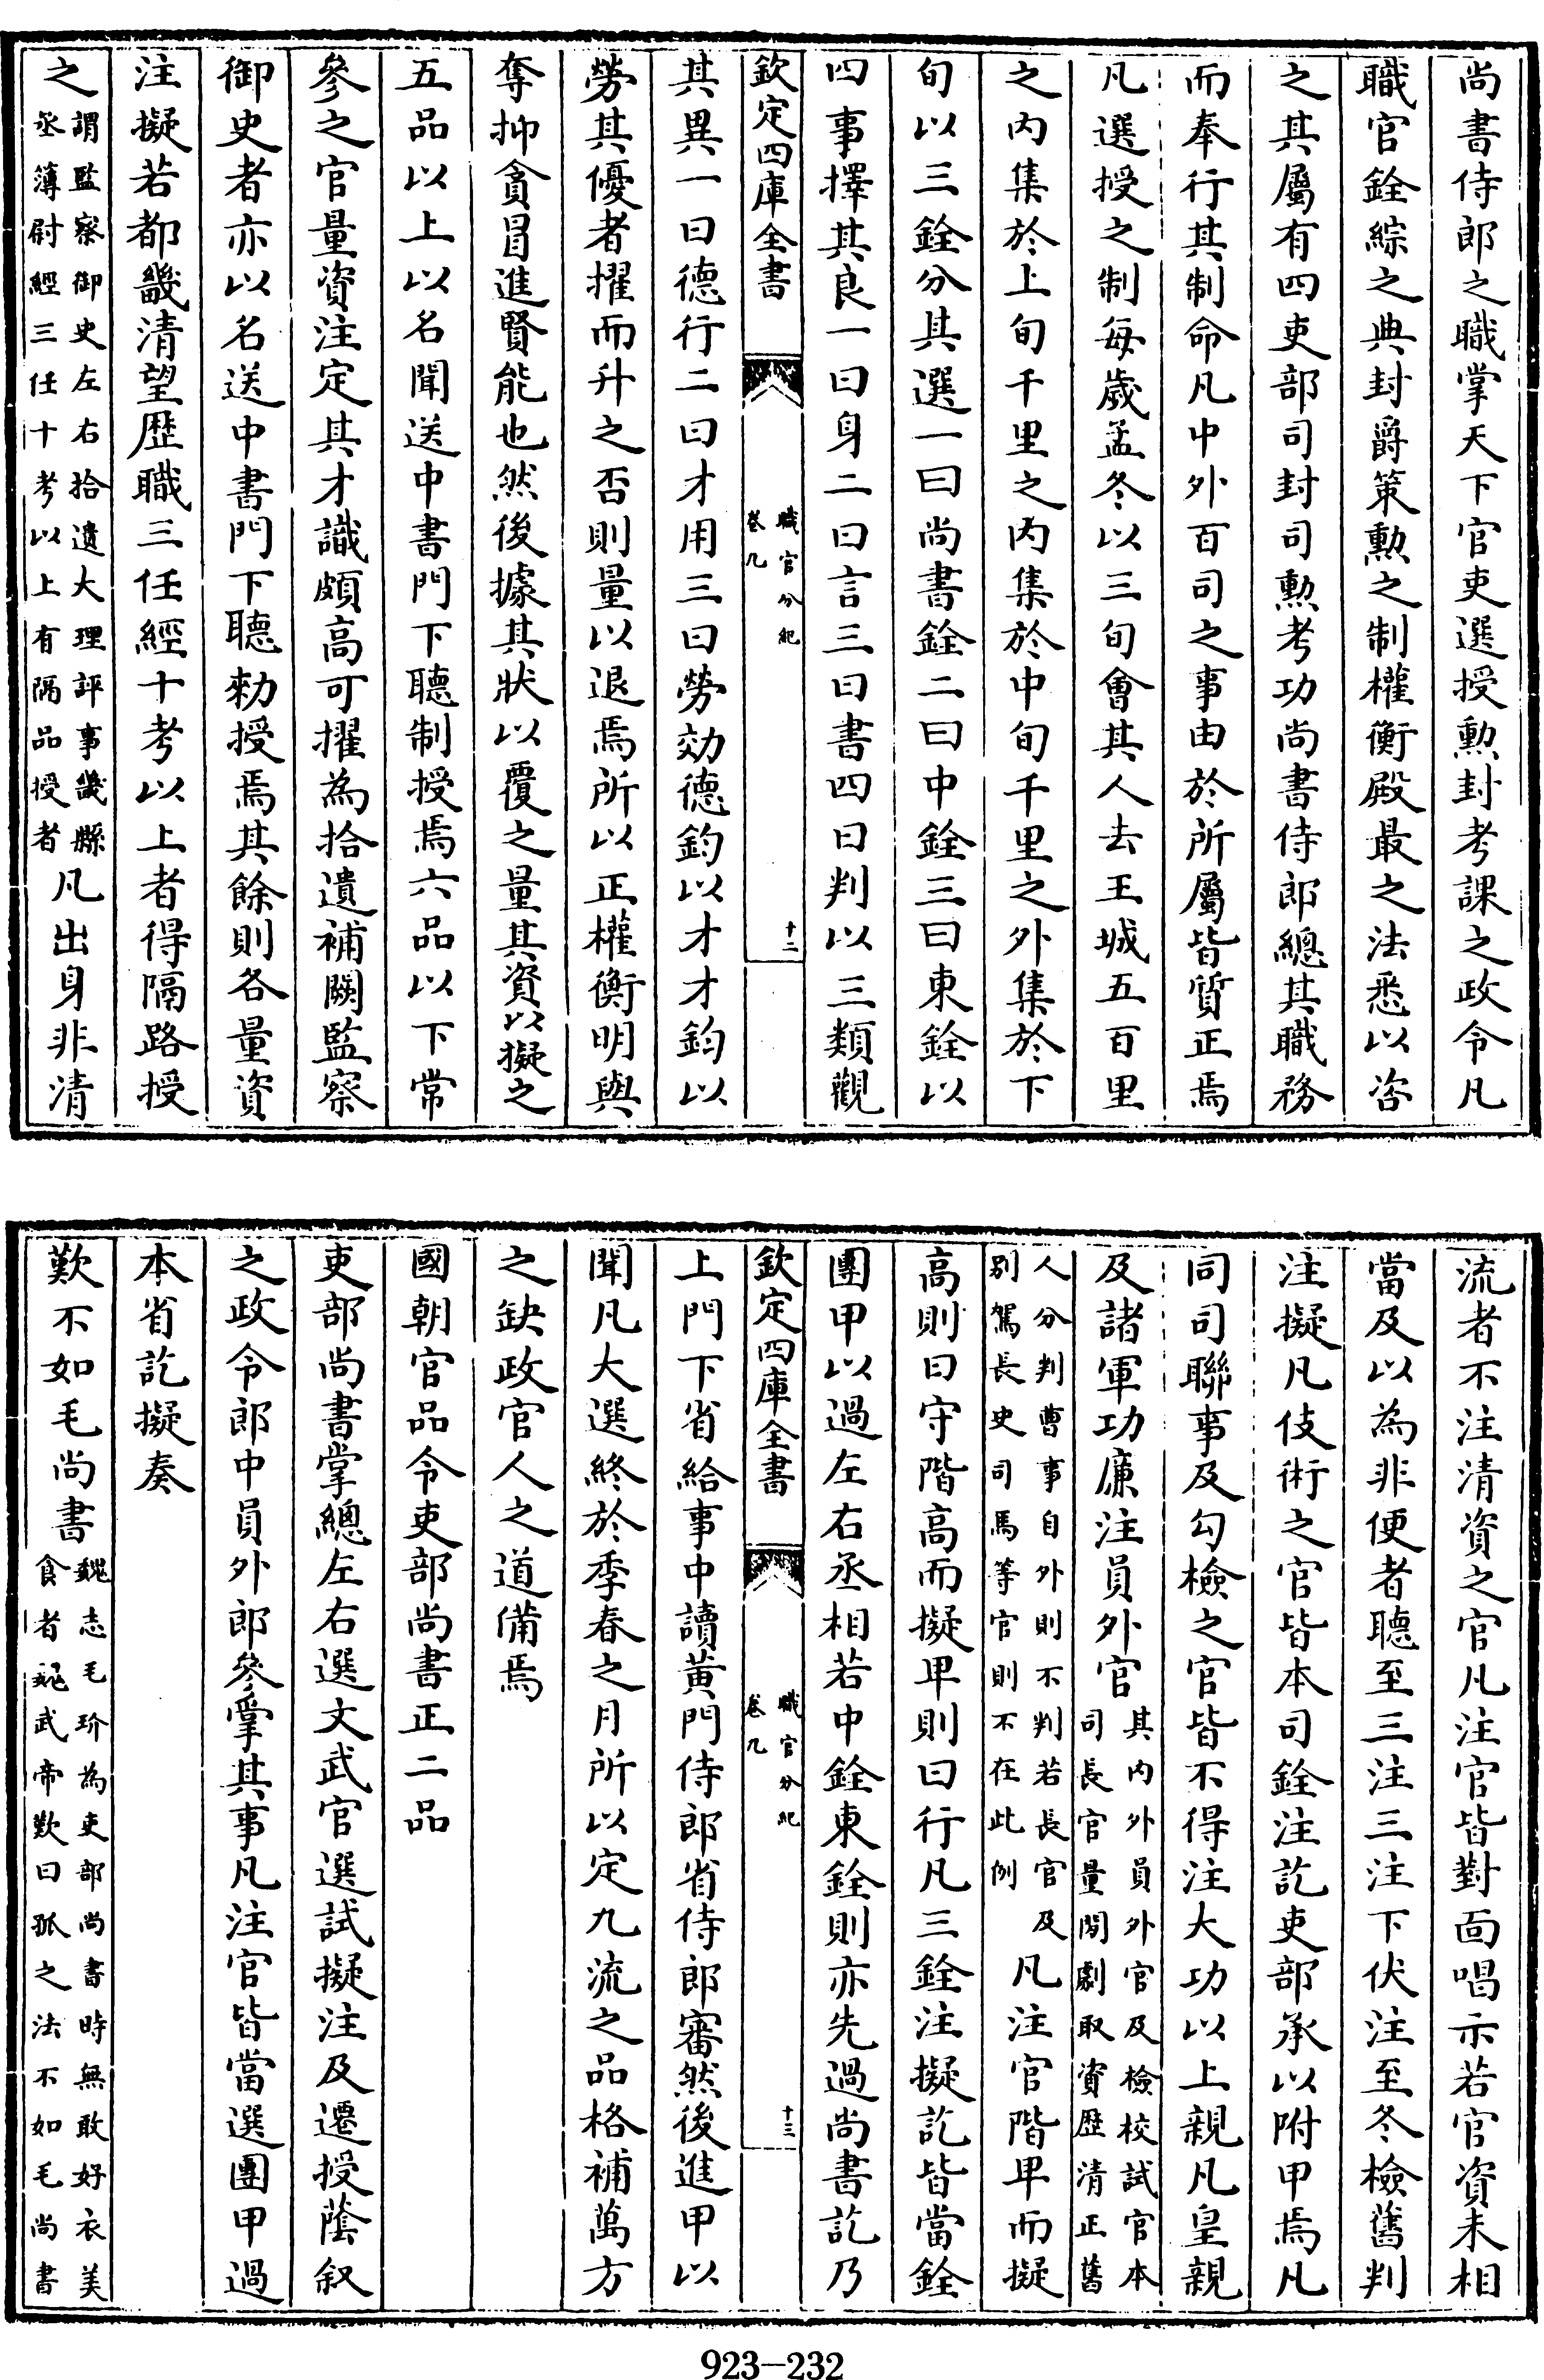 尚書侍郎之職掌天下官吏選授勲封考課之政令凡
職官銓綜之典封爵策勲之制權衡殿最之法悉以咨
之其屬有四吏部司封司勲考功尚書侍郎總其職務
而奉行其制命凡中外百司之事由於所屬皆質正焉
凡選授之制每歲孟冬以三旬會其人去王城五百里
之内集於上旬千里之内集於中旬千里之外集於下
旬以三銓分其選一曰尚書銓二曰中銓三曰東銓以
四事擇其良一曰身二曰言三曰書四曰判以三類觀
欽定四庫全書
職官分紀
卷九
十二
其異一曰德行二曰才用三曰勞効德鈞以才才鈞以
勞其優者擢而升之否則量以退焉所以正權衡明與
奪抑貪冒進賢能也然後據其狀以覆之量其資以擬之
五品以上以名聞送中書門下聽制授焉六品以下常
參之官量資注定其才識頗高可擢為拾遺補闕監察
御史者亦以名送中書門下聽勑授焉其餘則各量資
注擬若都畿清望歴職三任經十考以上者得隔路授
之謂監察御史左右拾遺大理評事畿縣
丞簿尉經三任十考以上有隔品授者凡出身非清
流者不注清資之官凡注官皆對面唱示若官資未相
當及以為非便者聽至三注三注下伏注至冬檢舊判
注擬凡伎術之官皆本司銓注訖吏部承以附甲焉凡
同司聯事及勾檢之官皆不得注大功以上親凡皇親
及諸軍功廉注員外官其内外員外官及檢校試官本
司長官量閑劇取資歴清正舊
人分判曹事自外則不判若長官及
别駕長史司馬等官則不在此例凡注官階卑而擬
高則曰守階高而擬卑則曰行凡三銓注擬訖皆當銓
團甲以過左右丞相若中銓東銓則亦先過尚書訖乃
欽定四庫全書
職官分紀
卷九
十三
上門下省給事中讀黄門侍郎省侍郎審然後進甲以
聞凡大選終於季春之月所以定九流之品格補萬方
之缺政官人之道備焉
國朝官品令吏部尚書正二品
吏部尚書掌總左右選文武官選試擬注及遷授蔭叙
之政令郎中員外郎參掌其事凡注官皆當選團甲過
本省訖擬奏
歎不如毛尚書魏志毛玠為吏部尚書時無敢好衣美
食者魏武帝歎曰孤之法不如毛尚書
923-232